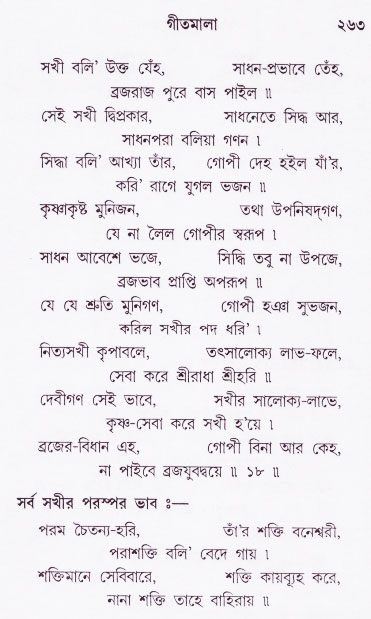 গীতমালা ২৬৩
সখী বলি’ উক্ত যেঁহ, সাধন-প্রভাবে তেঁহ,
ব্রজরাজ পুরে বাস পাইল ॥
সেই সখী দ্বিপ্রকার, সাধনেতে সিদ্ধ আর,
সাধনপরা বলিয়া গণন ৷
সিদ্ধা বলি’ আখ্যা তাঁর, গোপী দেহ হইল যাঁ’র,
করি’ রাগে যুগল ভজন ॥
কৃষ্ণাকৃষ্ট মুনিজন, তথা উপনিষদ্‌গণ,
যে না লৈল গোপীর স্বরূপ ৷
সাধন আবেশে ভজে, সিদ্ধি তবু না উপজে,
ব্রজভাব প্রাপ্তি অপরূপ ॥
যে যে শ্রুতি মুনিগণ, গোপী হঞা সুভজন,
করিল সখীর পদ ধরি’ ৷
নিত্যসখী কৃপাবলে, তৎসালোক্য লাভ-ফলে,
সেবা করে শ্রীরাধা শ্রীহরি ॥
দেবীগণ সেই ভাবে, সখীর সালোক্য-লাভে,
কৃষ্ণ-সেবা করে সখী হ’য়ে ৷
ব্রজের-বিধান এহ, গোপী বিনা আর কেহ,
না পাইবে ব্রজযুবদ্বয়ে ॥ ১৮ ॥
সর্ব সখীর পরস্পর ভাব ঃ—
পরম চৈতন্য-হরি, তাঁ’র শক্তি বনেশ্বরী,
পরাশক্তি বলি’ বেদে গায় ৷
শক্তিমানে সেবিবারে, শক্তি কায়ব্যূহ করে,
নানা শক্তি তাহে বাহিরায় ॥